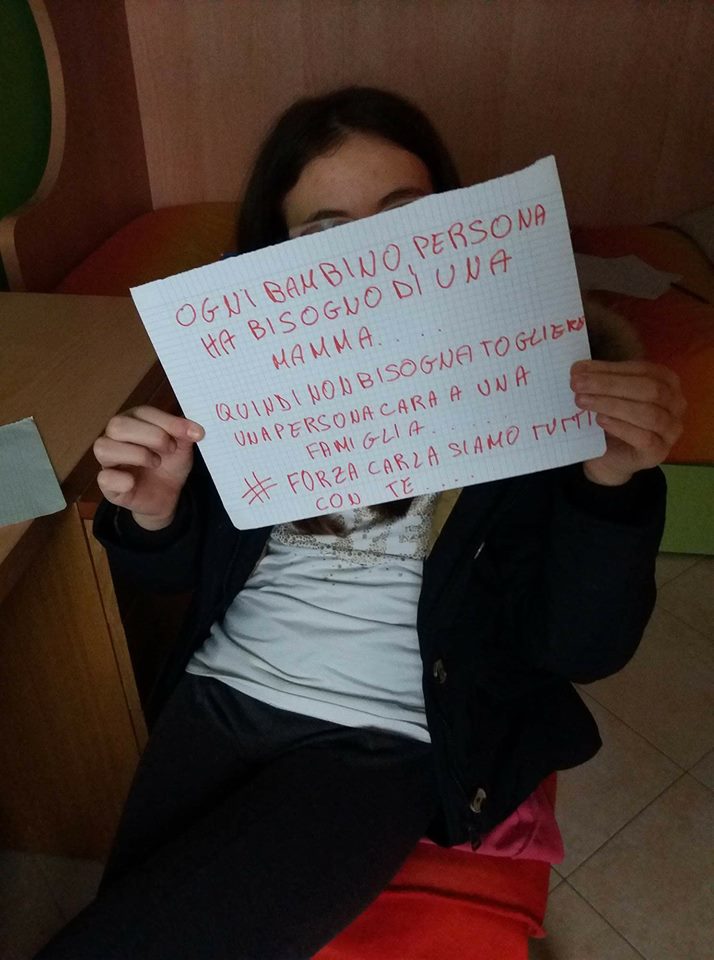 OGNI BAMBINO, PERSONA
HA BISOGNO DÌ UNA
MAMMA.....
QUINDI NON BISOGNA TOGLIERE
UNA PERSONA CARA A UNA
FAMIGLIA......
# FORZA CARLA SIAMO TUTTI
CON TE.....